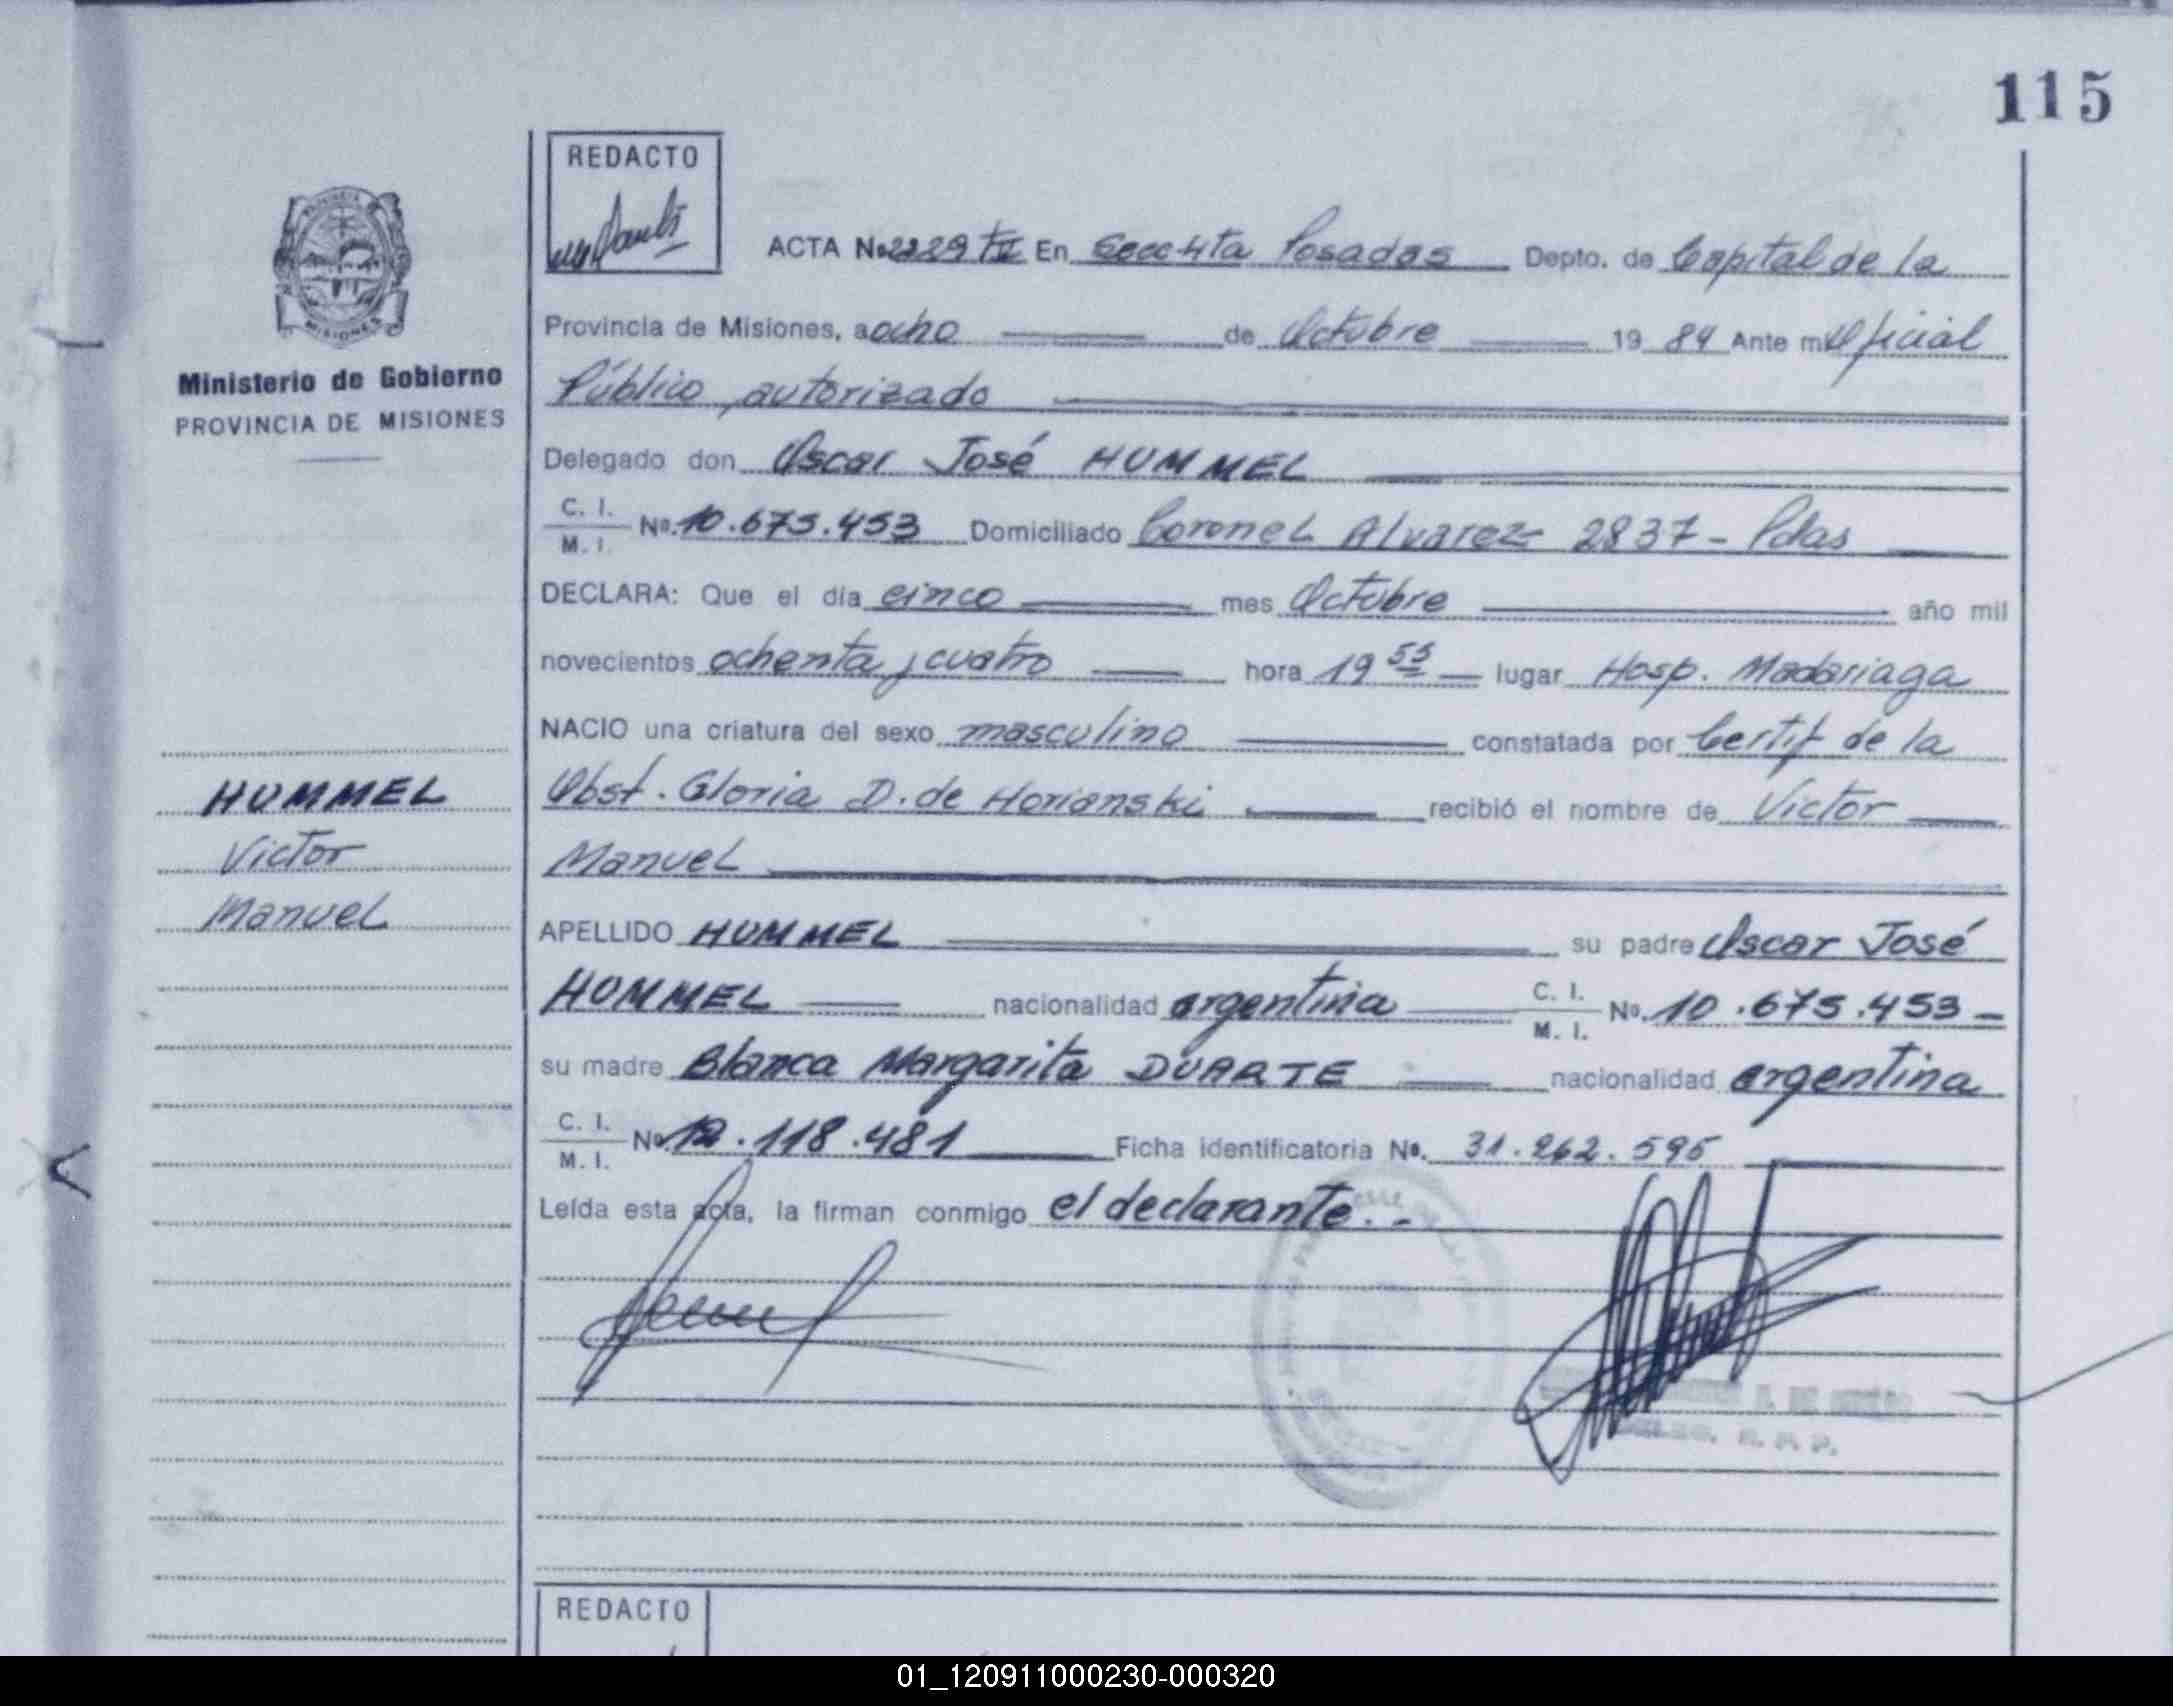 115
REDACTO
ACTA No. 2229 TII En Secc 4ta Posadas Depto. de Capital de la
Provincia de Misiones, a ocho de Octubre 19 84 Ante mi Oficial
Público autorizado
Ministerio de Gobierno
PROVINCIA DE MISIONES
MISIONES
Delegado don Oscar José HUMMEL
C. I.
M. I.
No. 10.675.453 Domiciliado Coronel Alvarez 2837 - Pdas
DECLARA: Que el día cinco mes Octubre año mil
novecientos ochenta y cuatro hora 19 55 lugar Hosp. Madariaga
NACIO una criatura del sexo masculino constatada por Certif de la
Obst. Gloria D. de Horianski recibió el nombre de Victor
Manuel
HUMMEL
Victor
Manuel
APELLIDO HUMMEL su padre Oscar José
HUMMEL nacionalidad argentina C. I. M. I. No. 10.675.453 -
su madre Blanca Margarita DUARTE nacionalidad argentina
C. I.
M. I.
No. 12.118.481 Ficha identificatoria No. 31.262.595
Leída esta acta, la firman conmigo el declarante. -
REDACTO
01_120911000230-000320